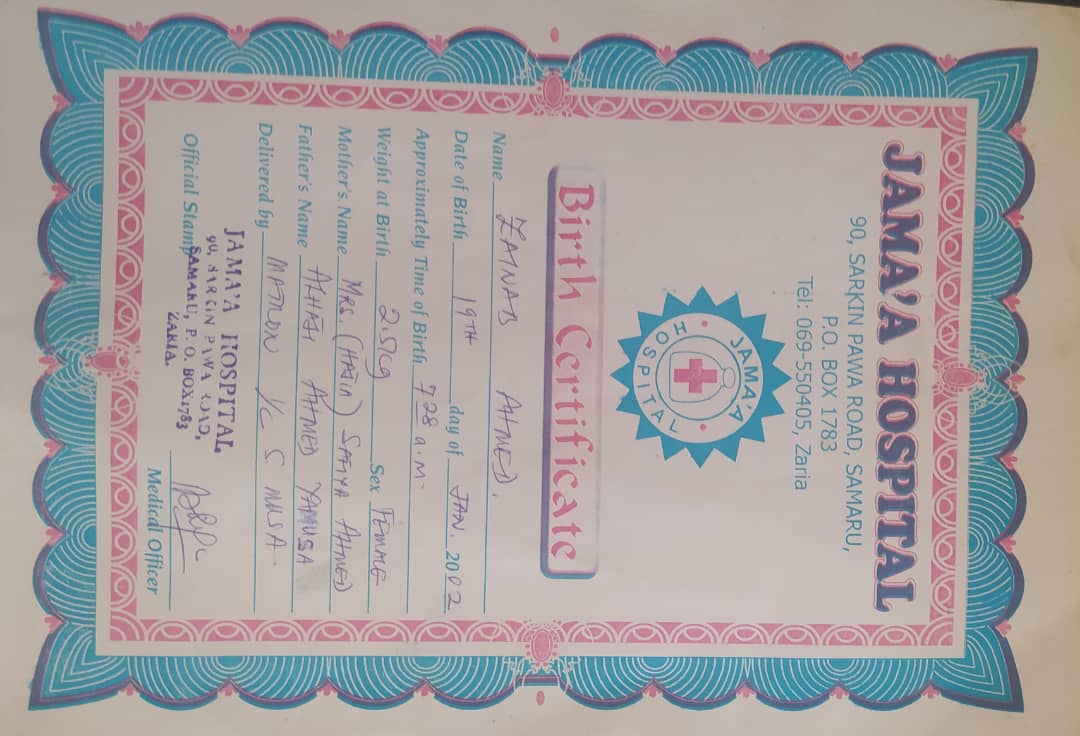 JAMA'A HOSPITAL
90, SARKIN PAWA ROAD, SAMARU,
P.O. BOX 1783
Tel: 069-550405, Zaria
JAMA'A
HOSPITAL
Birth Certificate
Name ZAINAB AHMED.
Date of Birth 19TH day of JAN. 2002
Approximately Time of Birth 7 28 a.m.
Weight at Birth 2.5kg Sex FEMALE
Mother's Name MRS. (HAJIA) SAFIYA AHMED
Father's Name ALHAJI AHMED YAMUSA
Delivered by MATRON I/C S MUSA.
JAMA'A HOSPITAL
90, SARKIN PAWA ROAD,
Official Stamp SAMARU, P. O. BOX 1783
ZARIA.
Medical Officer